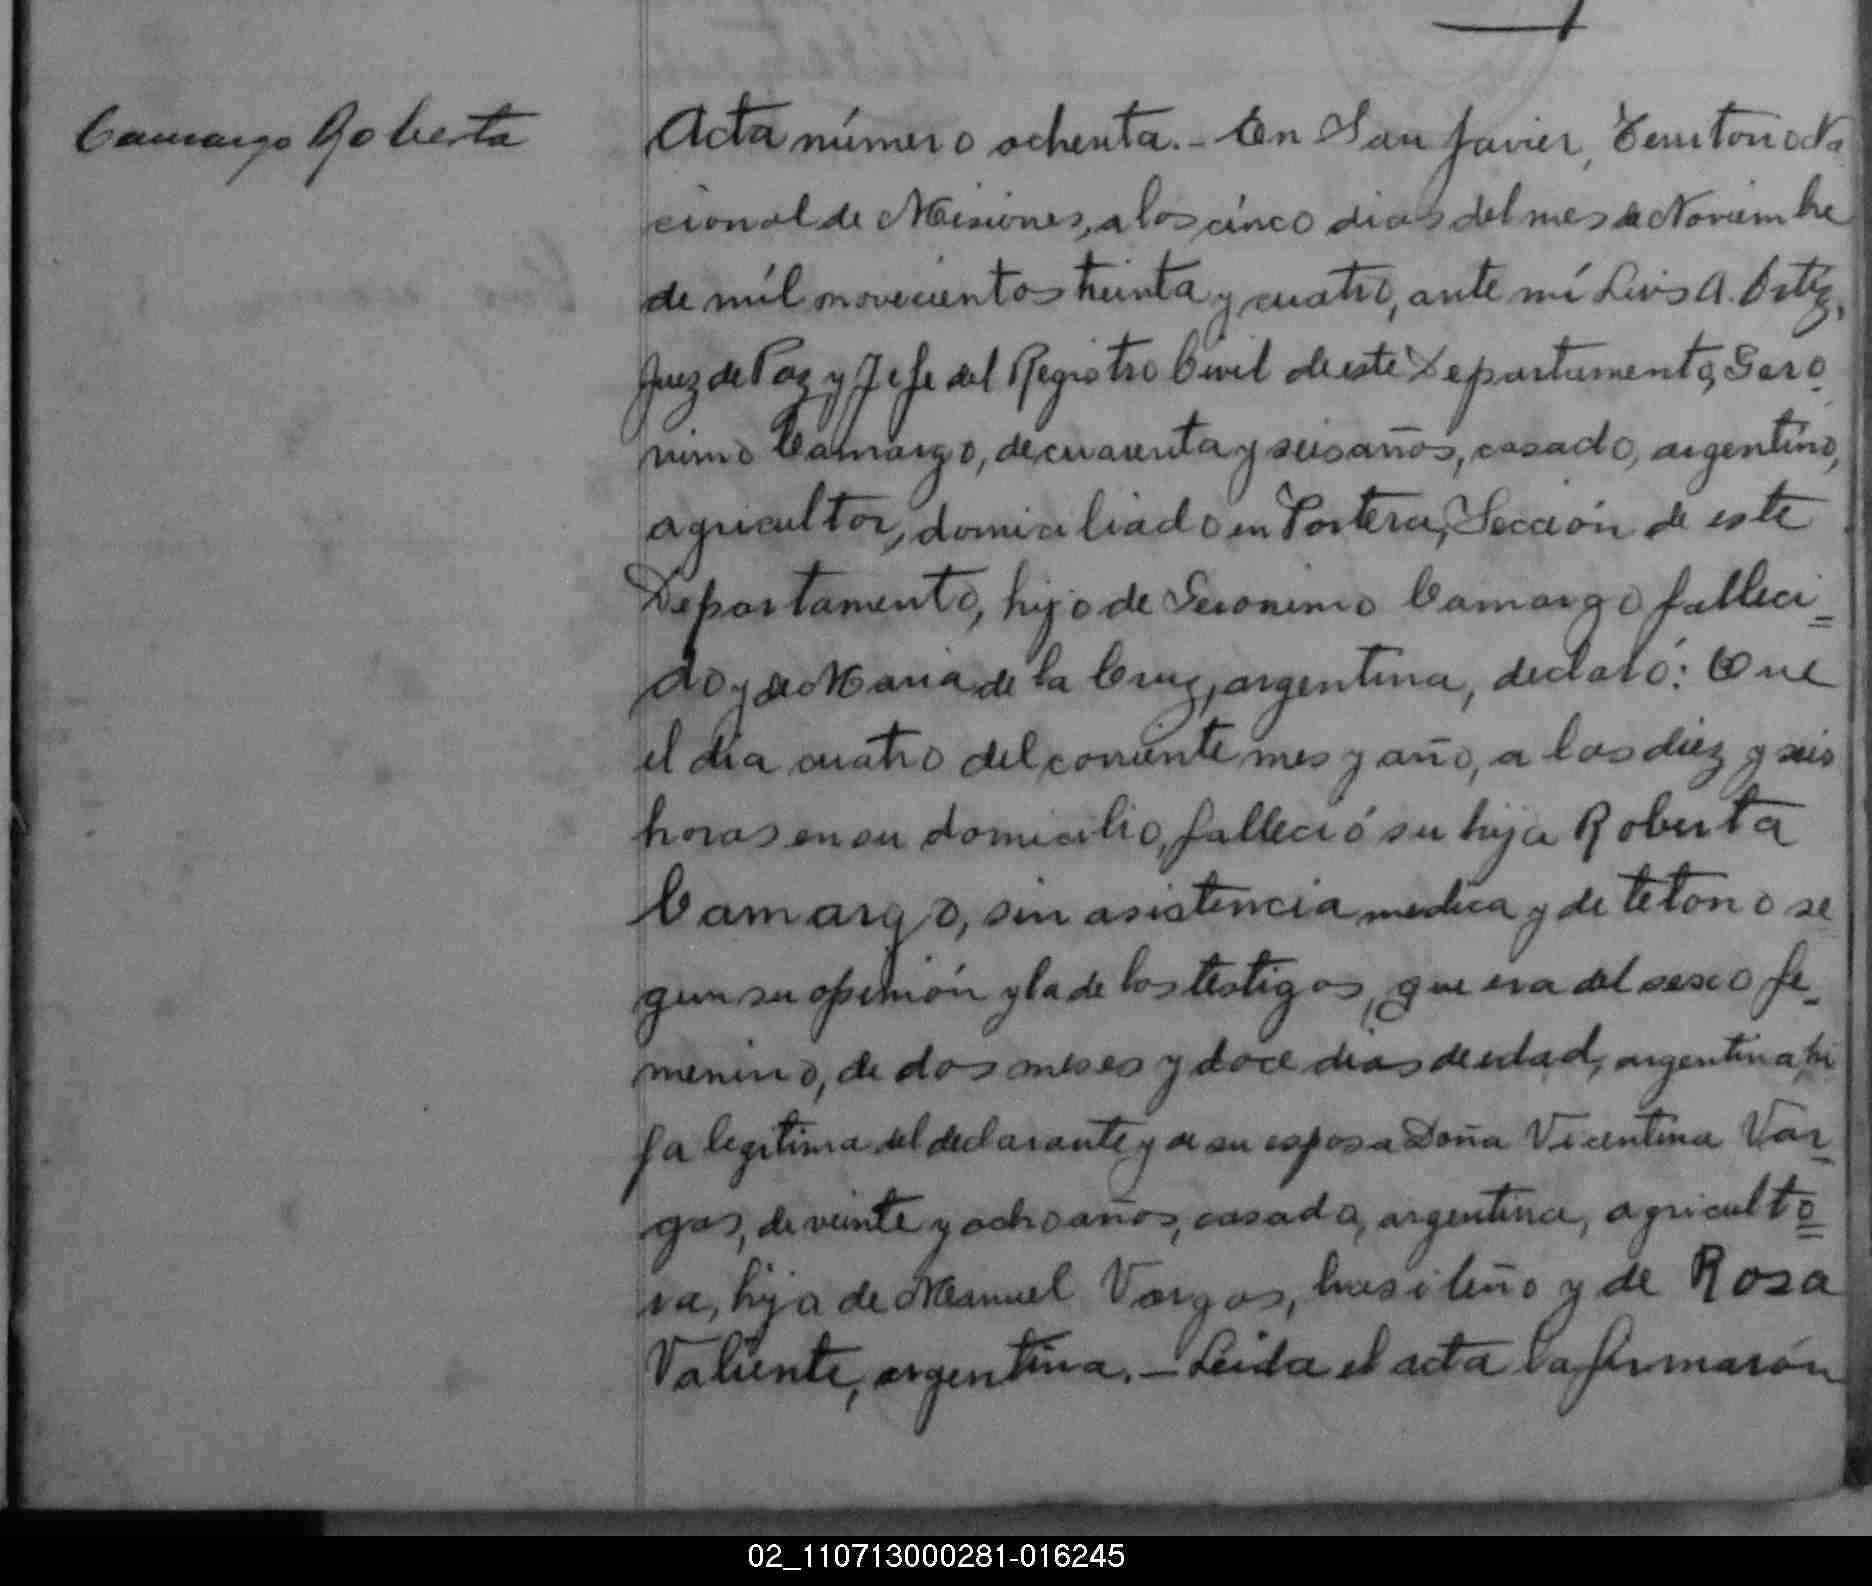 Camargo Roberta
Acta número ochenta.- En San Javier, Territorio Na
cional de Misiones, a los cinco dias del mes de Noviembre
de mil novecientos treinta y cuatro, ante mí Luis A. Ortiz,
Juez de Paz y Jefe del Registro Civil de este Departamento, Gero
nimo Camargo, de cuarenta y seis años, casado, argentino,
agricultor, domiciliado en Portera, Sección de este
Departamento, hijo de Geronimo Camargo falleci=
do y de Maria de la Cruz, argentina, declaró: Que
el dia cuatro del corriente mes y año, a las diez y seis
horas en su domicilio, falleció su hija Roberta
Camargo, sin asistencia medica y de tetano se
gun su opinión y la de los testigos, que era del sexo fe-
menino, de dos meses y doce dias de edad, argentina, hi
ja legitima del declarante y de su esposa Doña Vicentina Var-
gas, de veinte y ocho años, casada, argentina, agriculto=
ra, hija de Manuel Vargas, brasileño y de Rosa
Valiente, argentina.- Leida el acta la firmarón
02_110713000281-016245